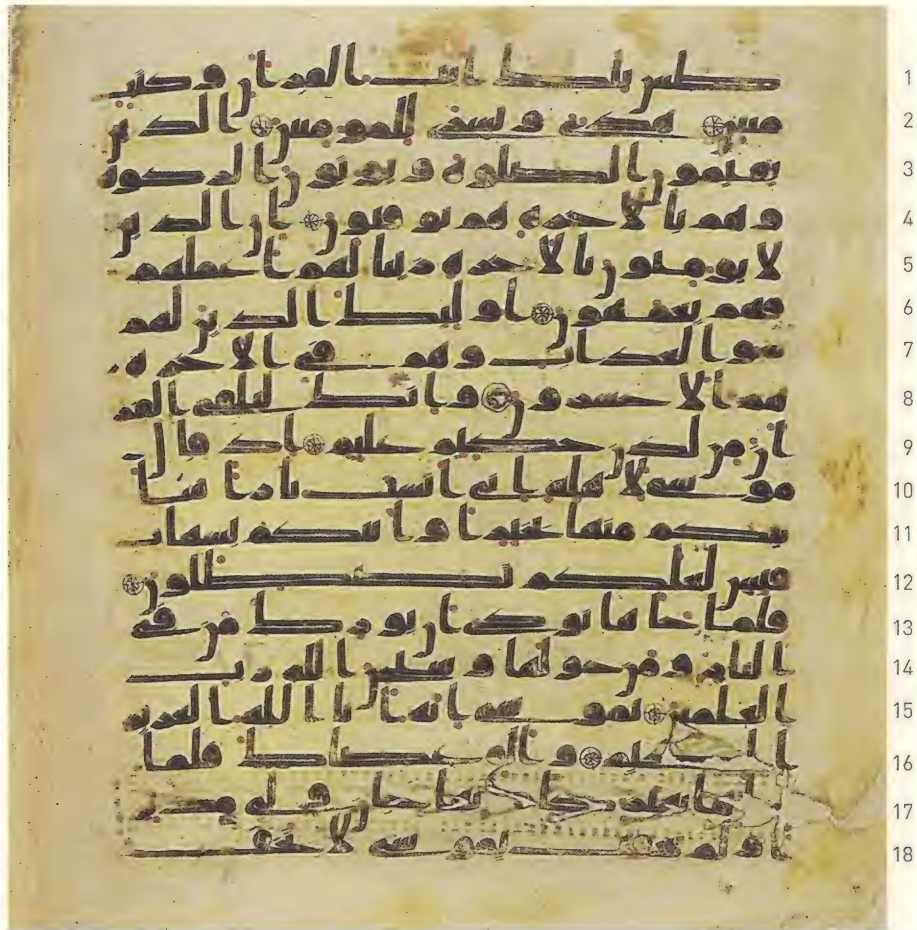 1 طس تلك ايت القران وكتب
2 مبين هدى وبشرى للمومنين الذين
3 يقيمون الصلوة ويوتون الزكوة
4 وهم بالاخرة هم يوقنون ان الذين
5 لا يومنون بالاخرة زينا لهم اعملهم
6 فهم يعمهون اوليك الذين لهم
7 سو العذاب وهم في الاخرة
8 هم الاخسرون وانك لتلقى القر
9 ان من لدن حكيم عليم اذ قال
10 موسى لاهله اني انست نارا سا
11 تيكم منها بخبر او اتيكم بشهاب
12 قبس لعلكم تصطلون
13 فلما جاها نودي ان بورك من في
14 النار ومن حولها وسبحن الله رب
15 العلمين يموسى انه انا الله العزيز
16 الحكيم والق عصاك فلما
17 راها تهتز كانها جان ولى مدبر
18 ا ولم يعقب يموسى لا تخف